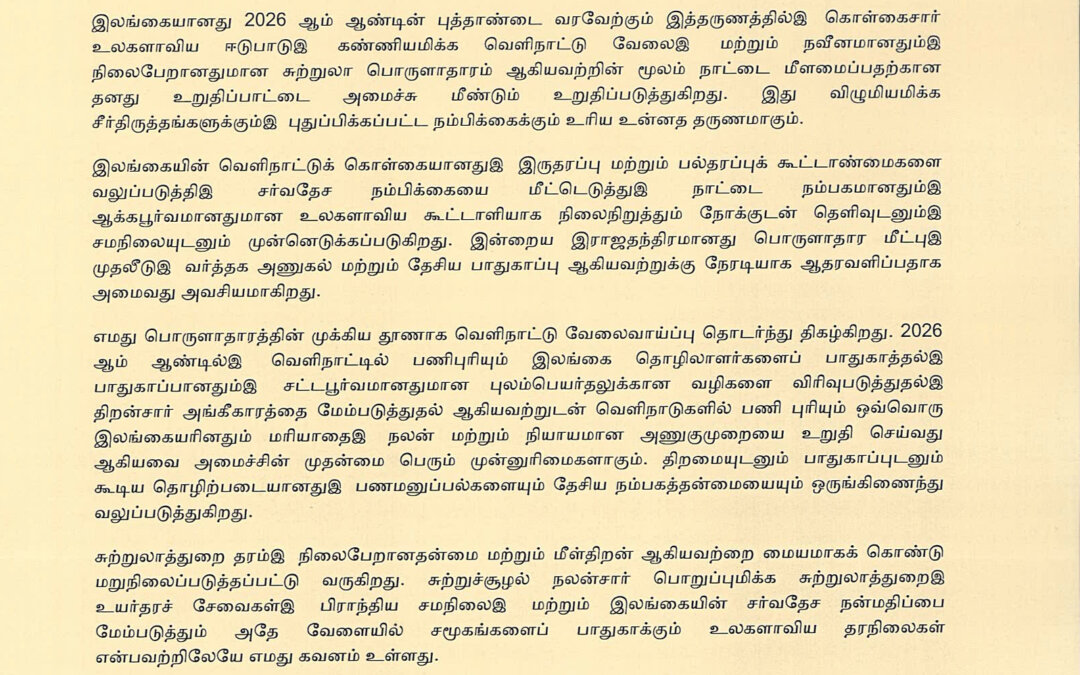 இலங்கையானது 2026 ஆம் ஆண்டின் புத்தாண்டை வரவேற்கும் இத்தருணத்தில்இ கொள்கைசார்
உலகளாவிய ஈடுபாடுஇ கண்ணியமிக்க வெளிநாட்டு வேலைஇ மற்றும் நவீனமானதும்இ
நிலைபேறானதுமான சுற்றுலா பொருளாதாரம் ஆகியவற்றின் மூலம் நாட்டை மீளமைப்பதற்கான
தனது உறுதிப்பாட்டை அமைச்சு மீண்டும் உறுதிப்படுத்துகிறது. இது விழுமியமிக்க
சீர்திருத்தங்களுக்கும்இ புதுப்பிக்கப்பட்ட நம்பிக்கைக்கும் உரிய உன்னத தருணமாகும்.
இலங்கையின் வெளிநாட்டுக் கொள்கையானதுஇ இருதரப்பு மற்றும் பல்தரப்புக் கூட்டாண்மைகளை
வலுப்படுத்திஇ சர்வதேச நம்பிக்கையை மீட்டெடுத்துஇ நாட்டை நம்பகமானதும்இ
ஆக்கபூர்வமானதுமான உலகளாவிய கூட்டாளியாக நிலைநிறுத்தும் நோக்குடன் தெளிவுடனும்இ
சமநிலையுடனும் முன்னெடுக்கப்படுகிறது. இன்றைய இராஜதந்திரமானது பொருளாதார மீட்புஇ
முதலீடுஇ வர்த்தக அணுகல் மற்றும் தேசிய பாதுகாப்பு ஆகியவற்றுக்கு நேரடியாக ஆதரவளிப்பதாக
அமைவது அவசியமாகிறது.
எமது பொருளாதாரத்தின் முக்கிய தூணாக வெளிநாட்டு வேலைவாய்ப்பு தொடர்ந்து திகழ்கிறது. 2026
ஆம் ஆண்டில்இ வெளிநாட்டில் பணிபுரியும் இலங்கை தொழிலாளர்களைப் பாதுகாத்தல்இ
பாதுகாப்பானதும்இ சட்டபூர்வமானதுமான புலம்பெயர்தலுக்கான வழிகளை விரிவுபடுத்துதல்இ
திறன்சார் அங்கீகாரத்தை மேம்படுத்துதல் ஆகியவற்றுடன் வெளிநாடுகளில் பணி புரியும் ஒவ்வொரு
இலங்கையரினதும் மரியாதைஇ நலன் மற்றும் நியாயமான அணுகுமுறையை உறுதி செய்வது
ஆகியவை அமைச்சின் முதன்மை பெரும் முன்னுரிமைகளாகும். திறமையுடனும் பாதுகாப்புடனும்
கூடிய தொழிற்படையானதுஇ பணமனுப்பல்களையும் தேசிய நம்பகத்தன்மையையும் ஒருங்கிணைந்து
வலுப்படுத்துகிறது.
சுற்றுலாத்துறை தரம்இ நிலைபேறானதன்மை மற்றும் மீள்திறன் ஆகியவற்றை மையமாகக் கொண்டு
மறுநிலைப்படுத்தப்பட்டு வருகிறது. சுற்றுச்சூழல் நலன்சார் பொறுப்புமிக்க சுற்றுலாத்துறைஇ
உயர்தரச் சேவைகள்இ பிராந்திய சமநிலைஇ மற்றும் இலங்கையின் சர்வதேச நன்மதிப்பை
மேம்படுத்தும் அதே வேளையில் சமூகங்களைப் பாதுகாக்கும் உலகளாவிய தரநிலைகள்
என்பவற்றிலேயே எமது கவனம் உள்ளது.